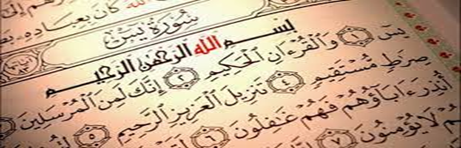 كَانَ بِعِبَادِهِ
سُورَةُ يسٓ
بِسْمِ اللَّهِ الرَّحْمَٰنِ الرَّحِيمِ
يسٓ ١ وَالْقُرْءَانِ الْحَكِيمِ ٢ إِنَّكَ لَمِنَ الْمُرْسَلِينَ ٣
صِرَٰطٍ مُّسْتَقِيمٍ ٤ تَنزِيلَ الْعَزِيزِ الرَّحِيمِ ٥
أُنذِرَ ءَابَآؤُهُمْ فَهُمْ غَٰفِلُونَ ٦
فَهُمْ لَا يُؤْمِنُونَ ٧